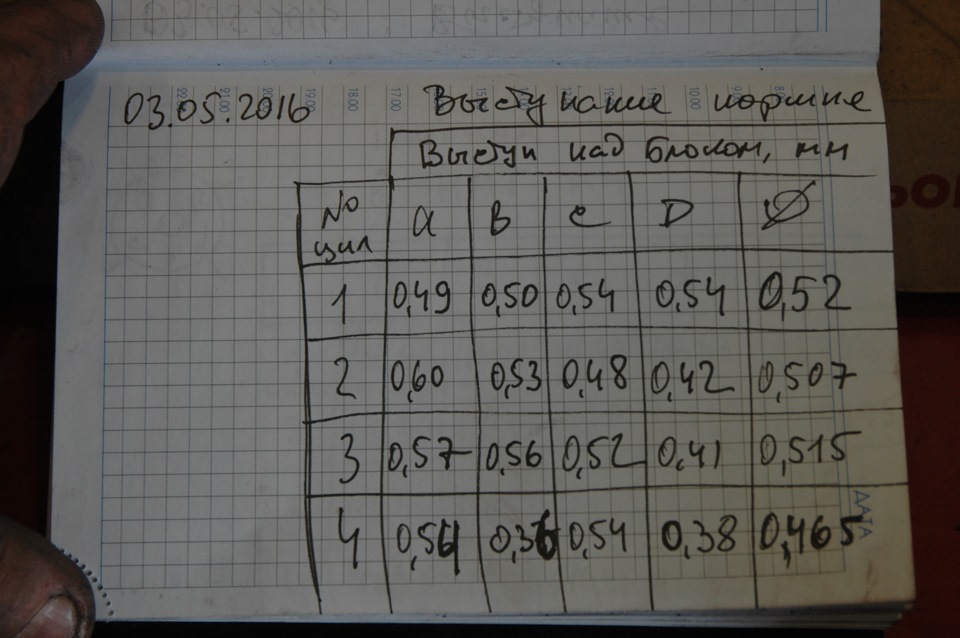 03.05.2016 Выступание поршне
Выступ над блоком, мм
№ цил a B c D Ø
1 0,49 0,50 0,54 0,54 0,52
2 0,60 0,53 0,48 0,42 0,507
3 0,57 0,56 0,52 0,41 0,515
4 0,54 0,36 0,54 0,38 0,465
ДАТА